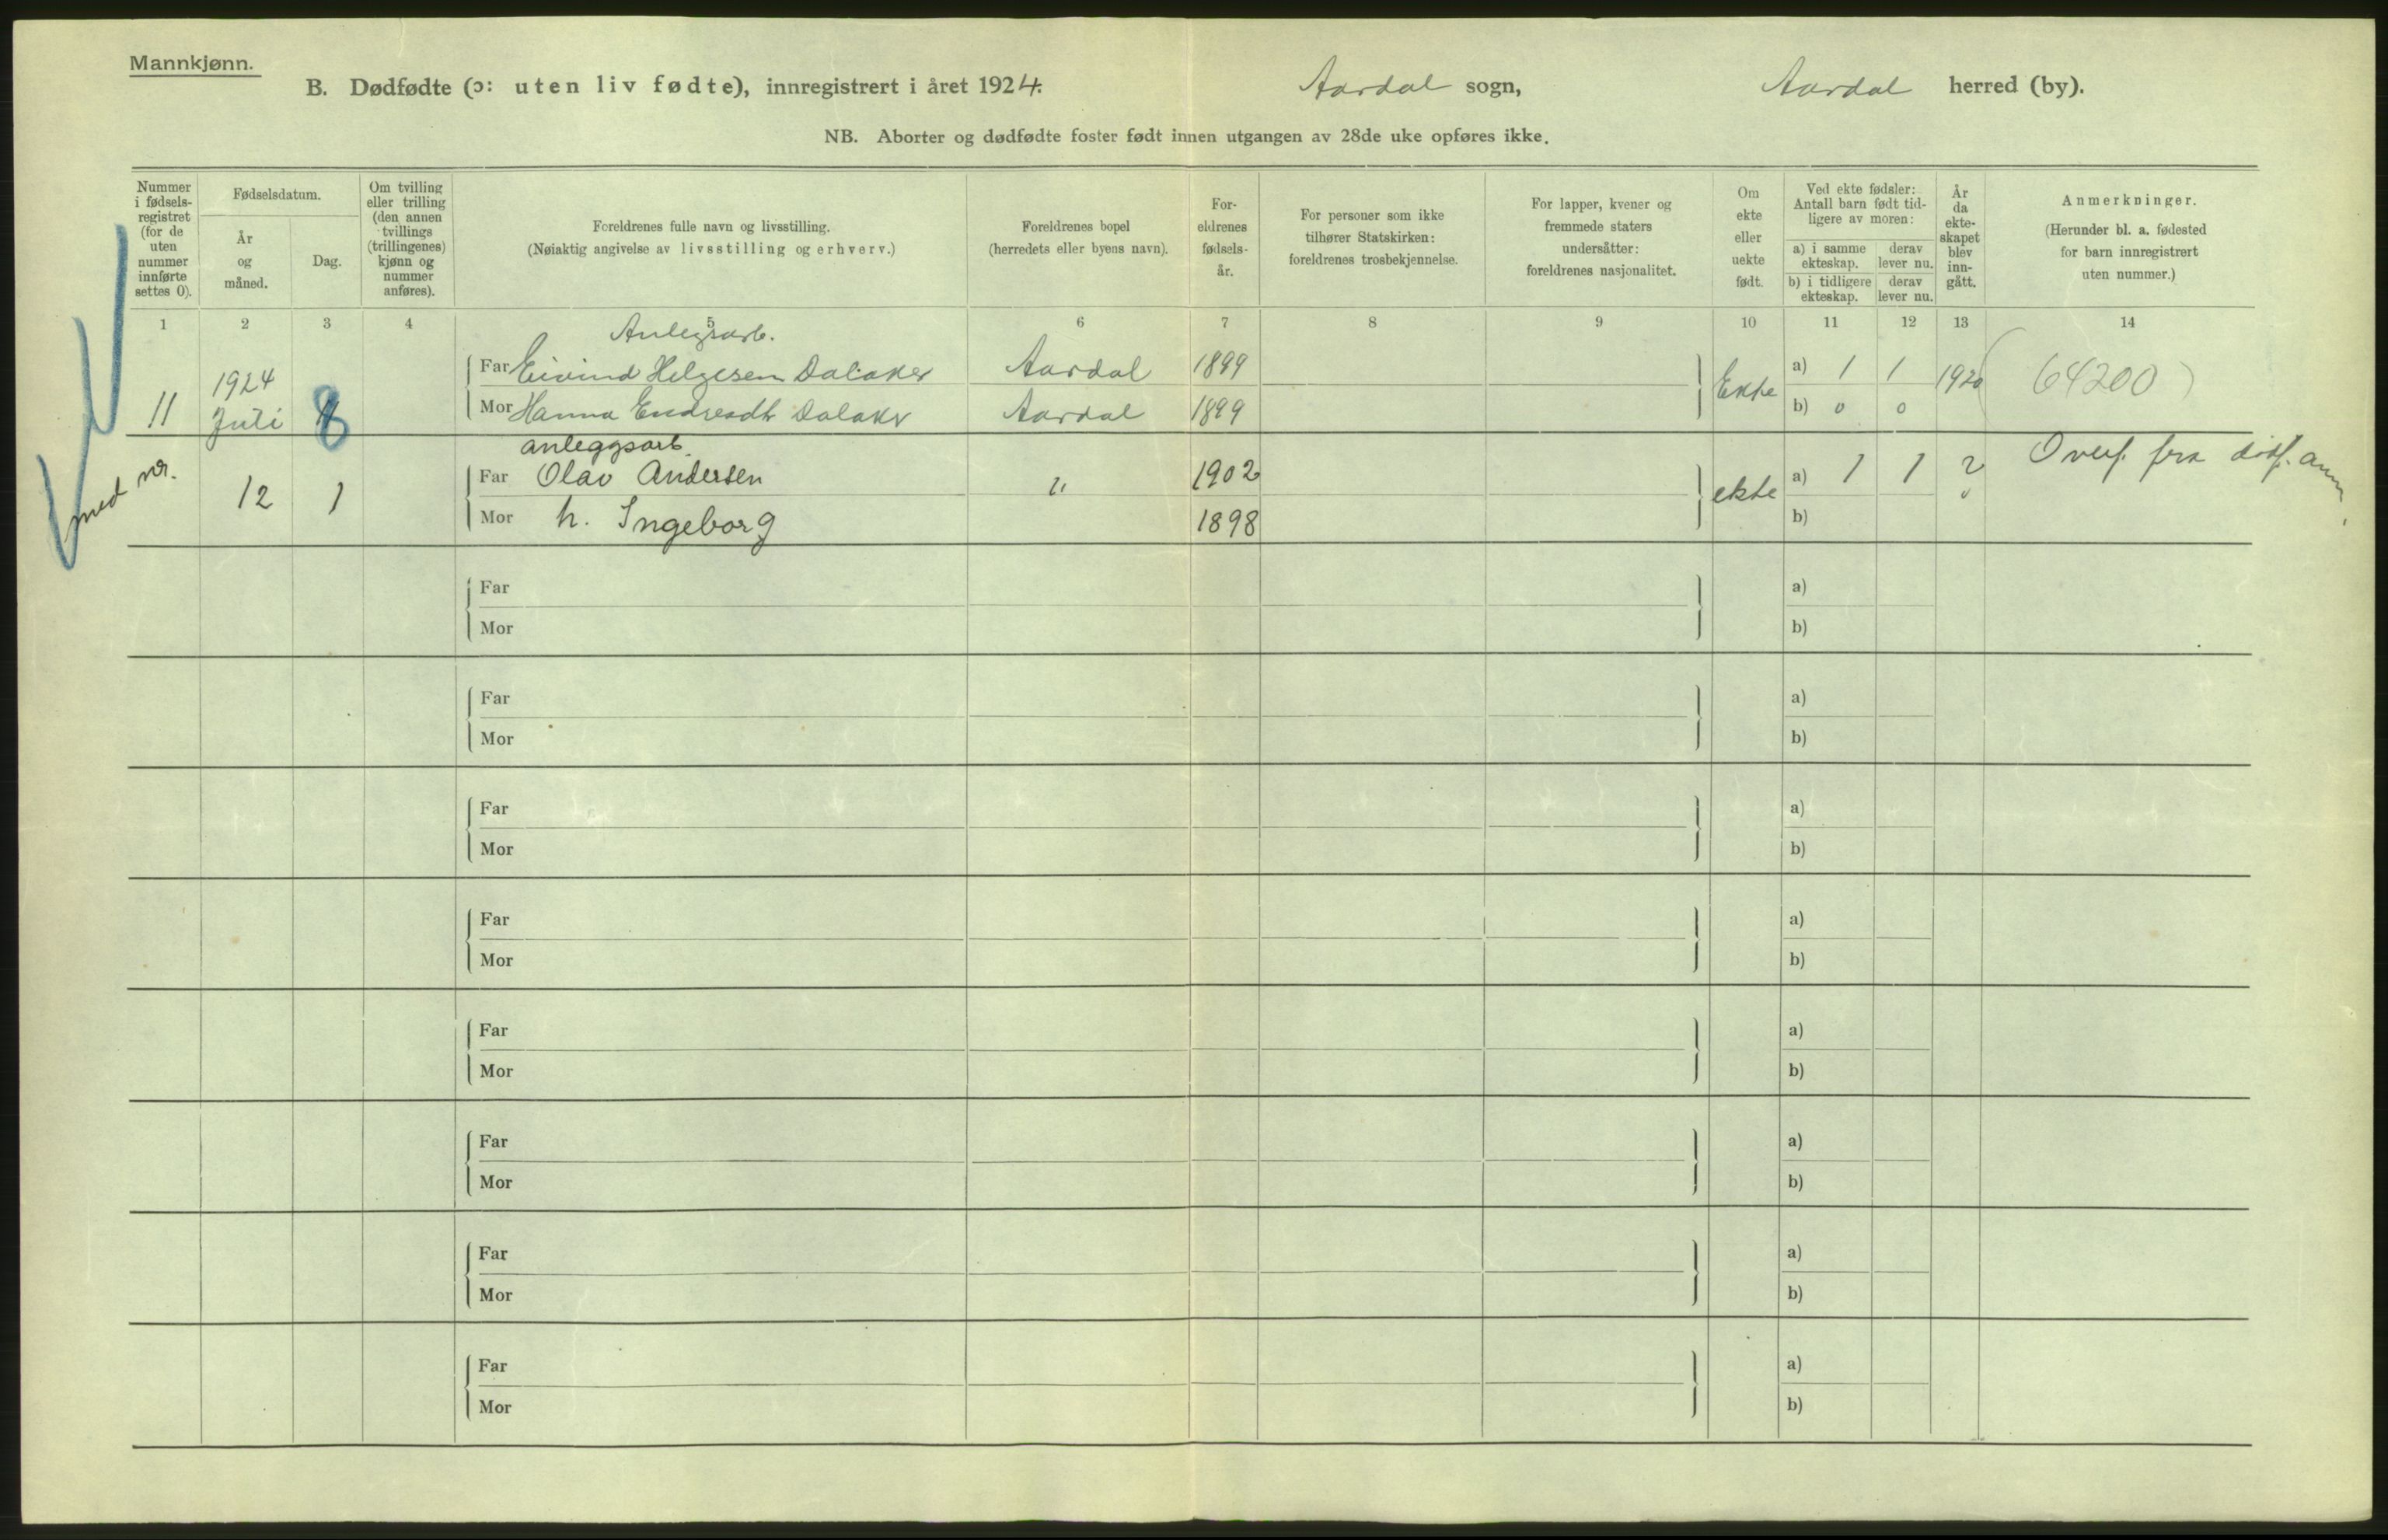 Mannkjønn.
B. Dødfødte (ɔ: uten liv fødte), innregistrert i året 1924. Aardal sogn, Aardal herred (by).
NB. Aborter og dødfødte foster født innen utgangen av 28de uke opføres ikke.
Nummer i fødsels-registret (for de uten nummer innførte settes 0).
Fødselsdatum.
År og måned.
Dag.
Om tvilling eller trilling (den annen tvillings (trillingenes) kjønn og nummer anføres).
Foreldrenes fulle navn og livsstilling.
(Nøiaktig angivelse av livsstilling og erhverv.)
Foreldrenes bopel
(herredets eller byens navn).
For-eldrenes fødsels-år.
For personer som ikke tilhører Statskirken: foreldrenes trosbekjennelse.
For lapper, kvener og fremmede staters undersåtter: foreldrenes nasjonalitet.
Om ekte eller uekte født.
Ved ekte fødsler: Antall barn født tid-ligere av moren:
a) i samme ekteskap. derav lever nu.
b) i tidligere ekteskap. derav lever nu.
År da ekte-skapet blev inn-gått.
Anmerkninger.
(Herunder bl. a. fødested for barn innregistrert uten nummer.)
1 2 3 4 5 6 7 8 9 10 11 12 13 14
Anlegsarb.
Far Eivind Helgesen Dalaker Aardal 1899 a) 1 1
11 1924 Juli 8 Ekte 1920 (64200)
Mor Hanna Endresdtr Dalaker Aardal 1899 b) 0 0
anleggsarb.
med nr.
Far Olav Andersen " 1902 a) 1 1 ?
12 1 ekte Overf. fra
Mor h. Ingeborg 1898 b)
Far a)
Mor b)
Far a)
Mor b)
Far a)
Mor b)
Far a)
Mor b)
Far a)
Mor b)
Far a)
Mor b)
Far a)
Mor b)
Far a)
Mor b)